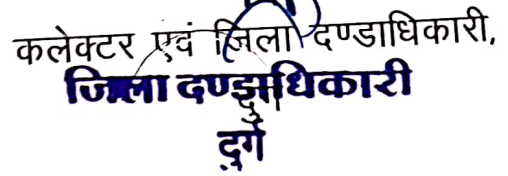 कलेक्टर एवं जिला दण्डाधिकारी,
जिला दण्डाधिकारी
दुर्ग
दुर्ग